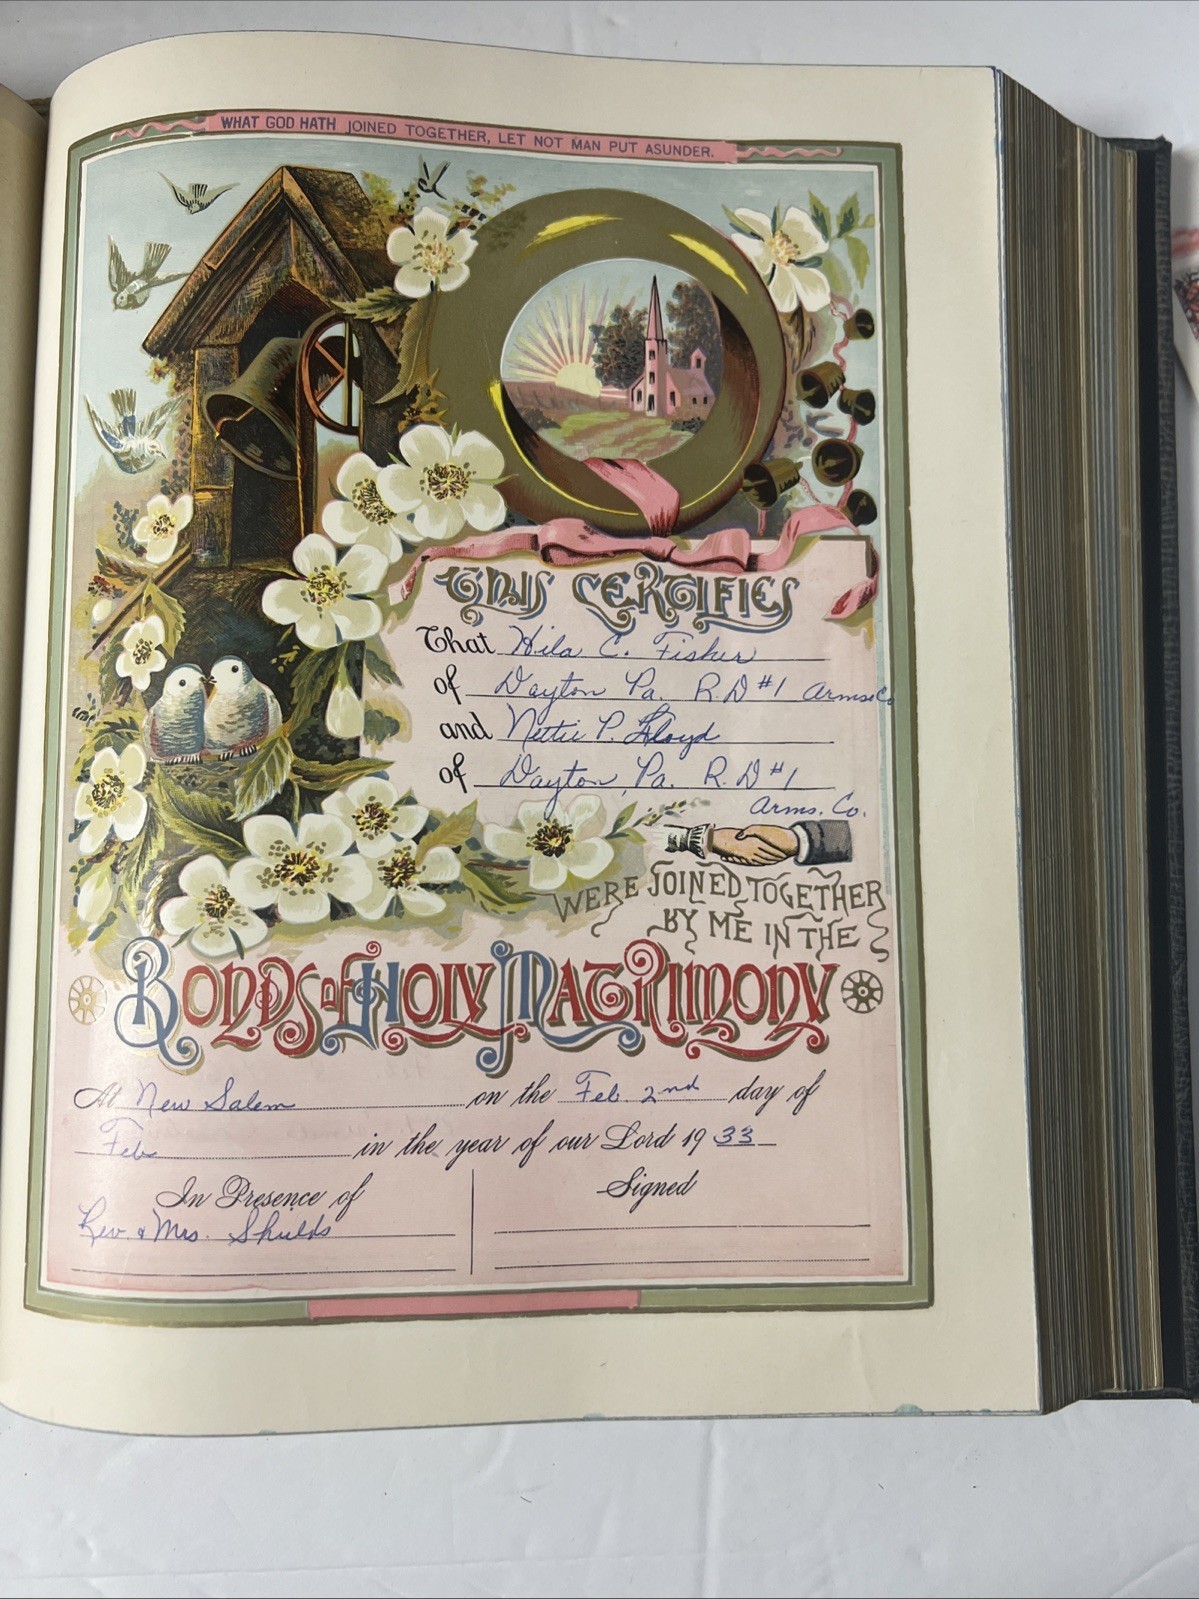 WHAT GOD HATH JOINED TOGETHER, LET NOT MAN PUT ASUNDER.
THIS CERTIFIES
That Hila C. Fisher
of Dayton Pa. R.D #1 Arms. Co.
and Nettie P. Lloyd
of Dayton, Pa. R.D #1
Arms. Co.
WERE JOINED TOGETHER
BY ME IN THE
BONDS OF HOLY MATRIMONY
At New Salem on the Feb. 2nd day of
Feb in the year of our Lord 1933
In Presence of
Signed
Rev. & Mrs. Shulds